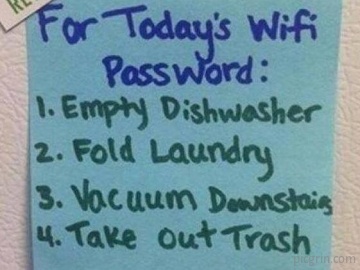 RE
For Today's Wifi
Password:
1. Empty Dishwasher
2. Fold Laundry
3. Vacuum Downstairs
4. Take Out Trash
picgrin.com